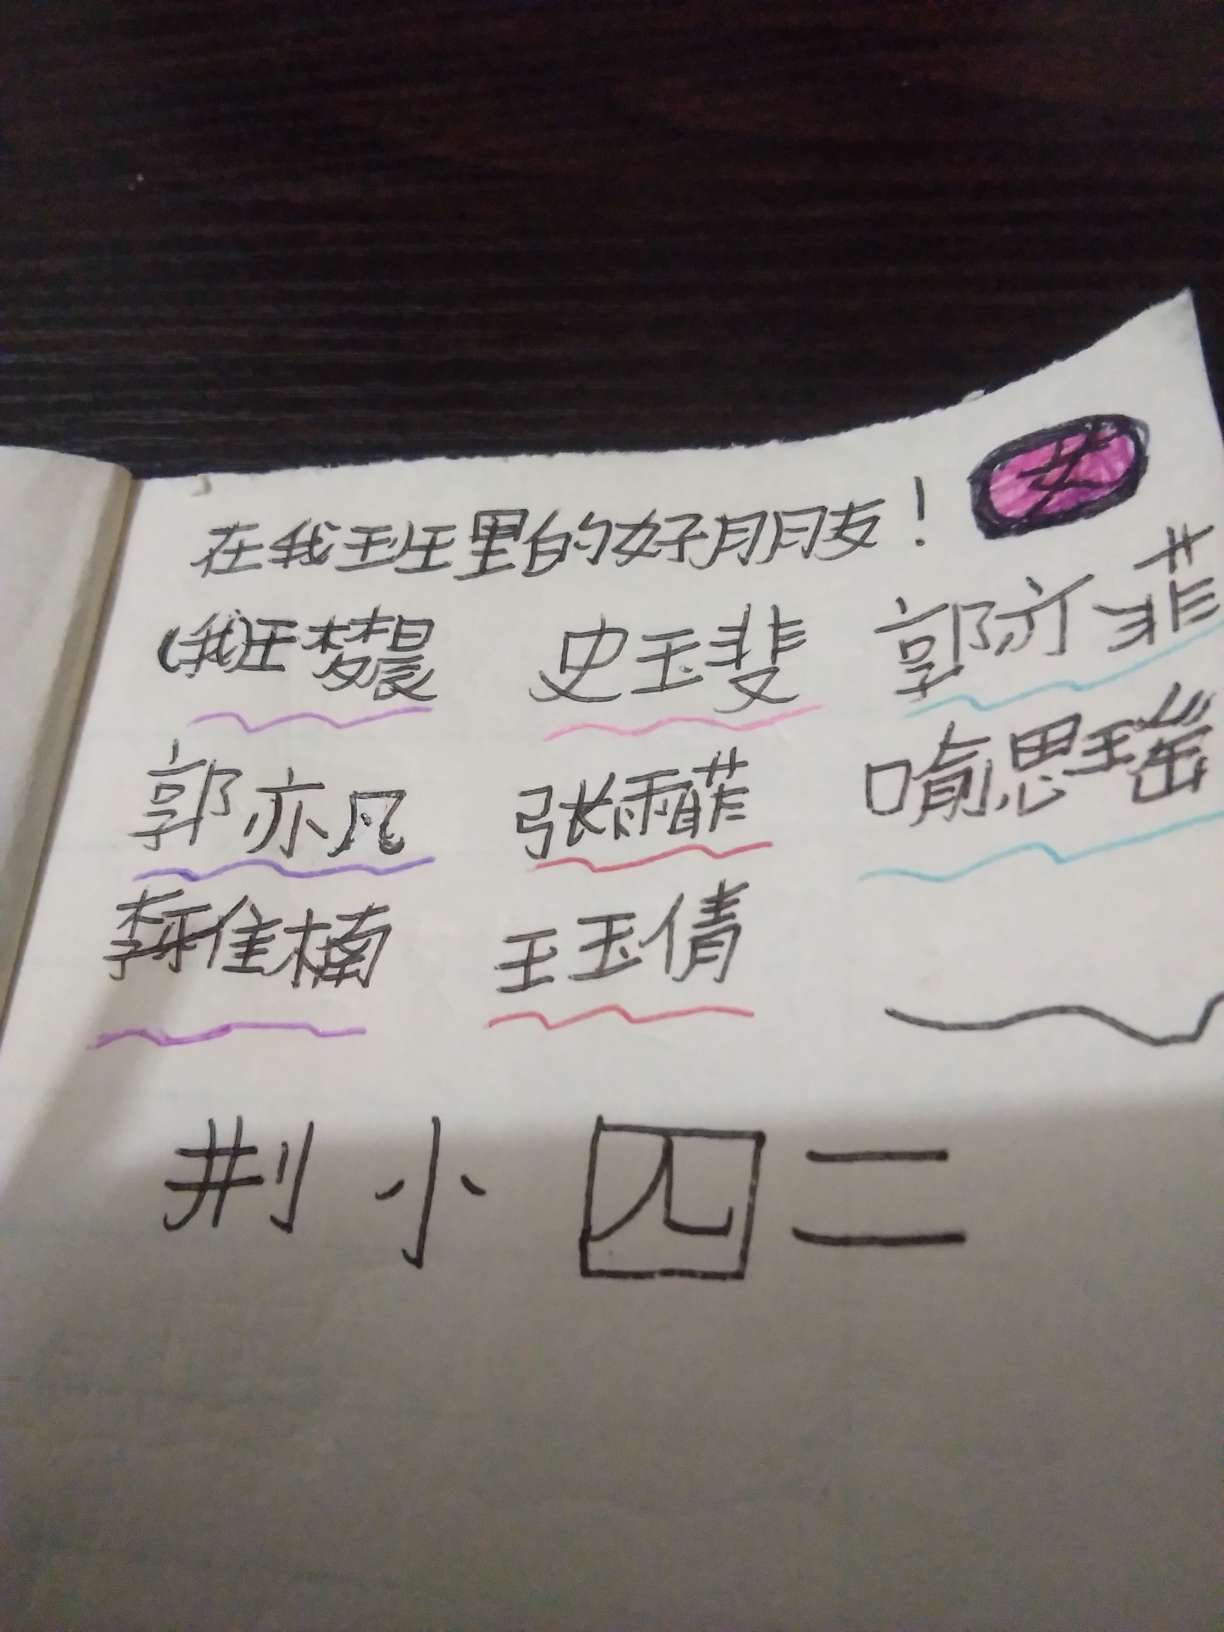 在我班里的好朋友！ 女
（我）王梦晨 史玉斐 郭亦菲
郭亦凡 张雨菲 喻思瑶
李佳楠 王玉倩
荆小四二